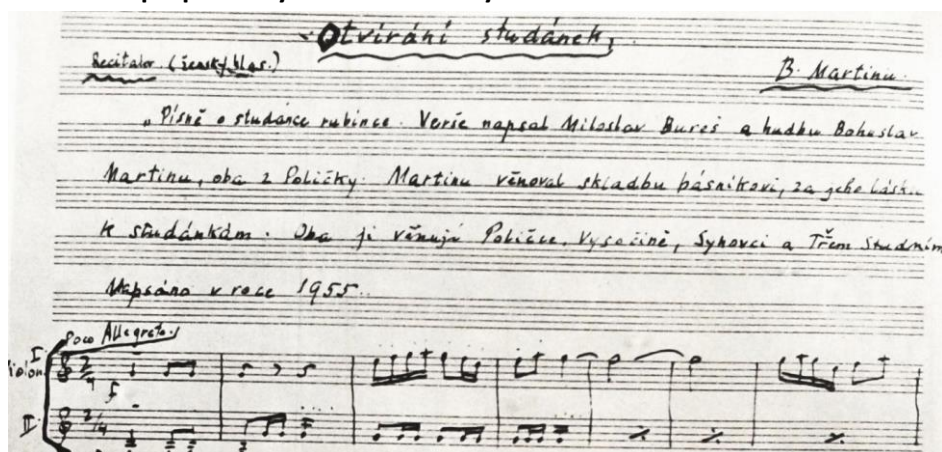 Otvírání studánek,
Recitator. (ženský hlas.)
B. Martinu.
„Písně o studánce rubínce. Verše napsal Miloslav Bureš a hudbu Bohuslav
Martinu, oba z Poličky. Martinu věnoval skladbu básníkovi, za jeho lásku
k studánkám. Oba ji věnují Poličce, Vysočině, Sykovci a Třem Studním
Napsáno v roce 1955.
Poco Allegreto.
I
Violon.
2/4
f
II
2/4